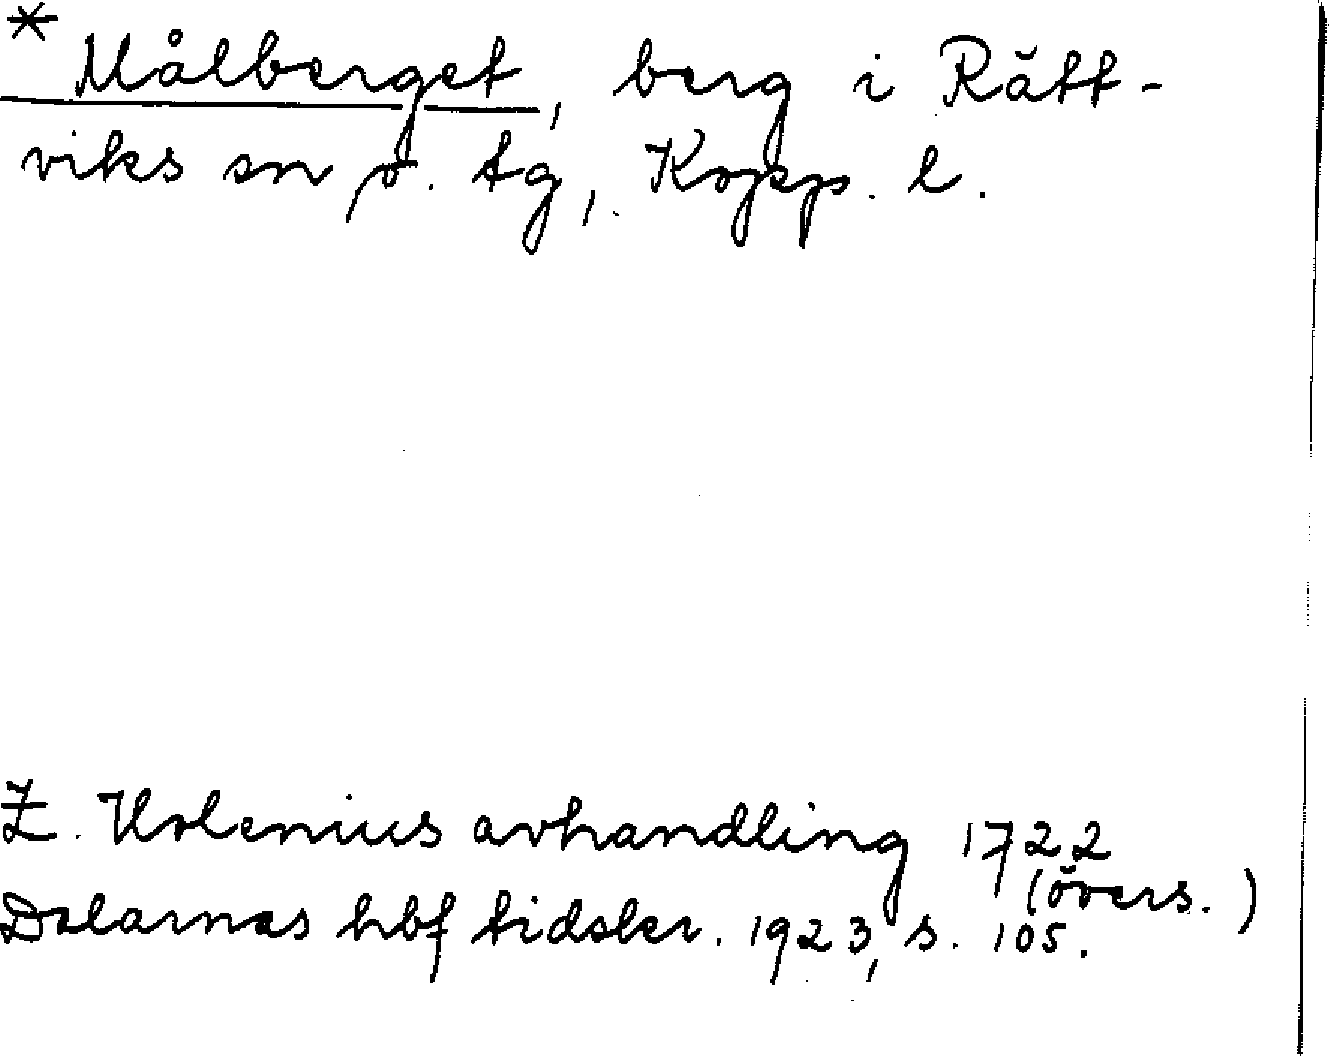 * Målberget, berg i Rätt-
viks sn o. tg, Kopp. l.
Z. Holenius avhandling 1722
(övers.)
Dalarnas hbf tidskr. 1923, s. 105.